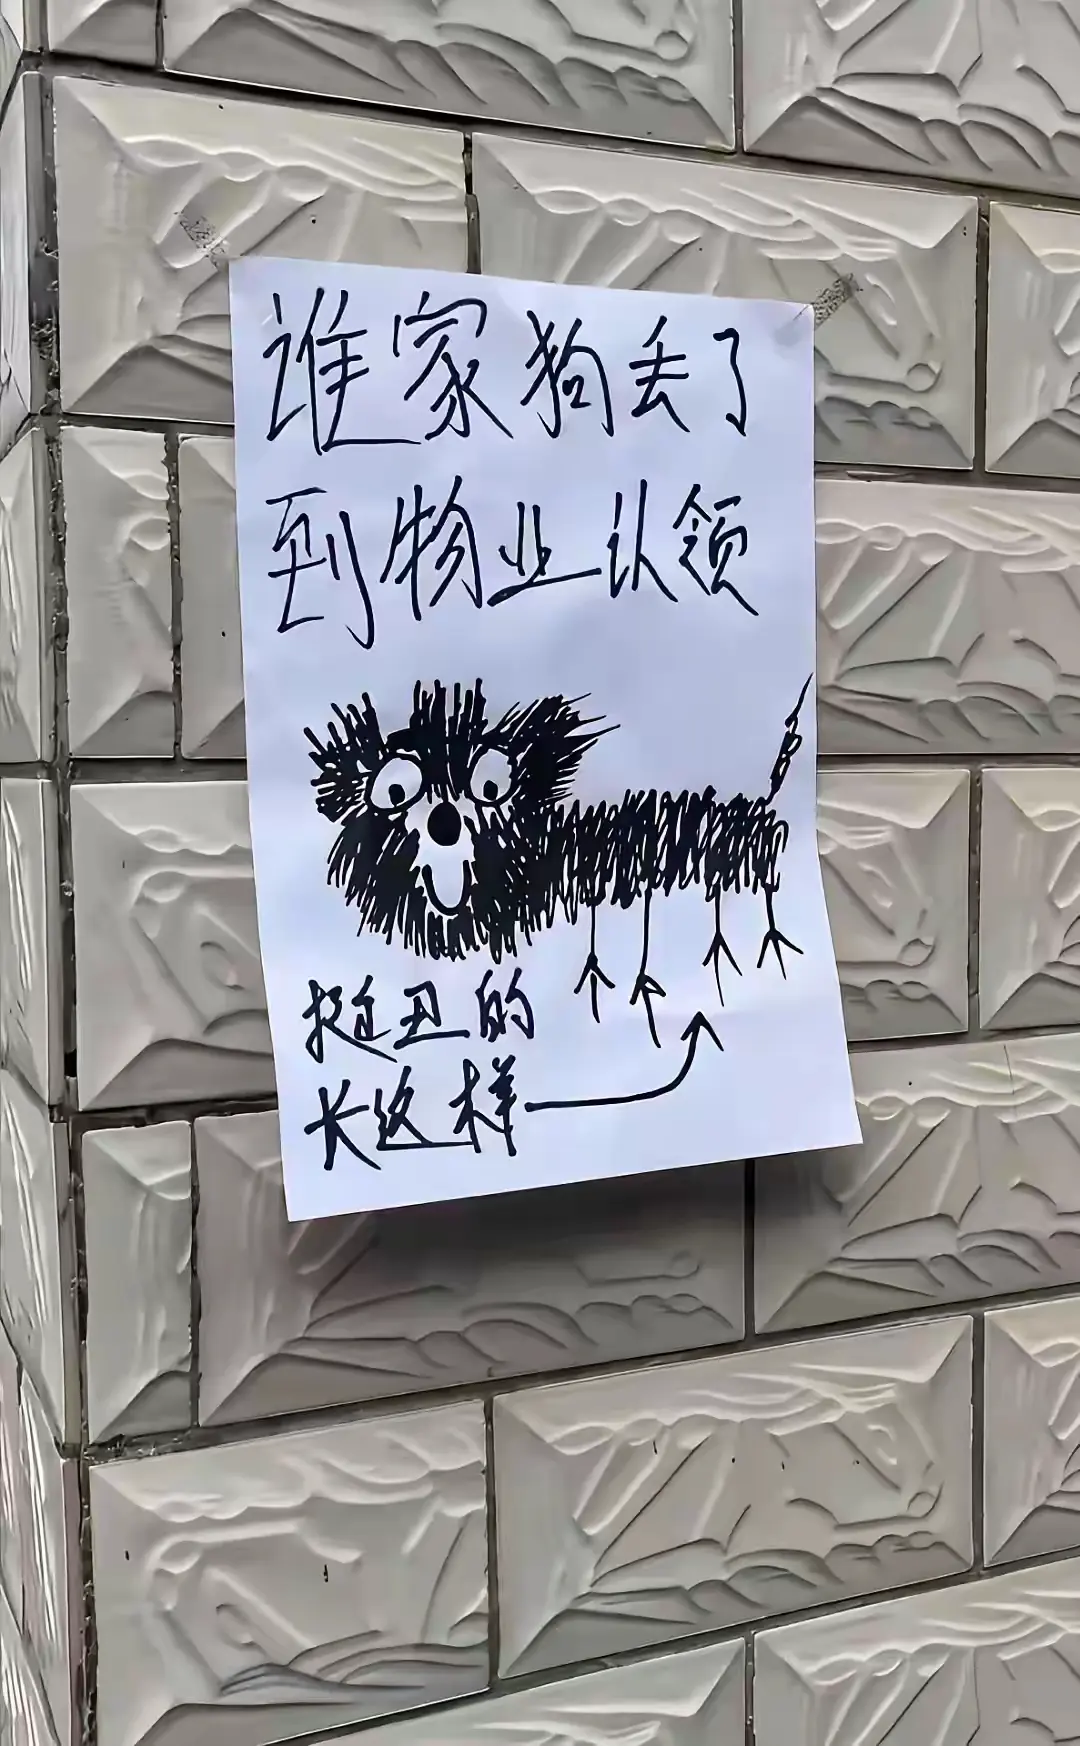 谁家狗丢了
到物业认领
挺丑的
长这样